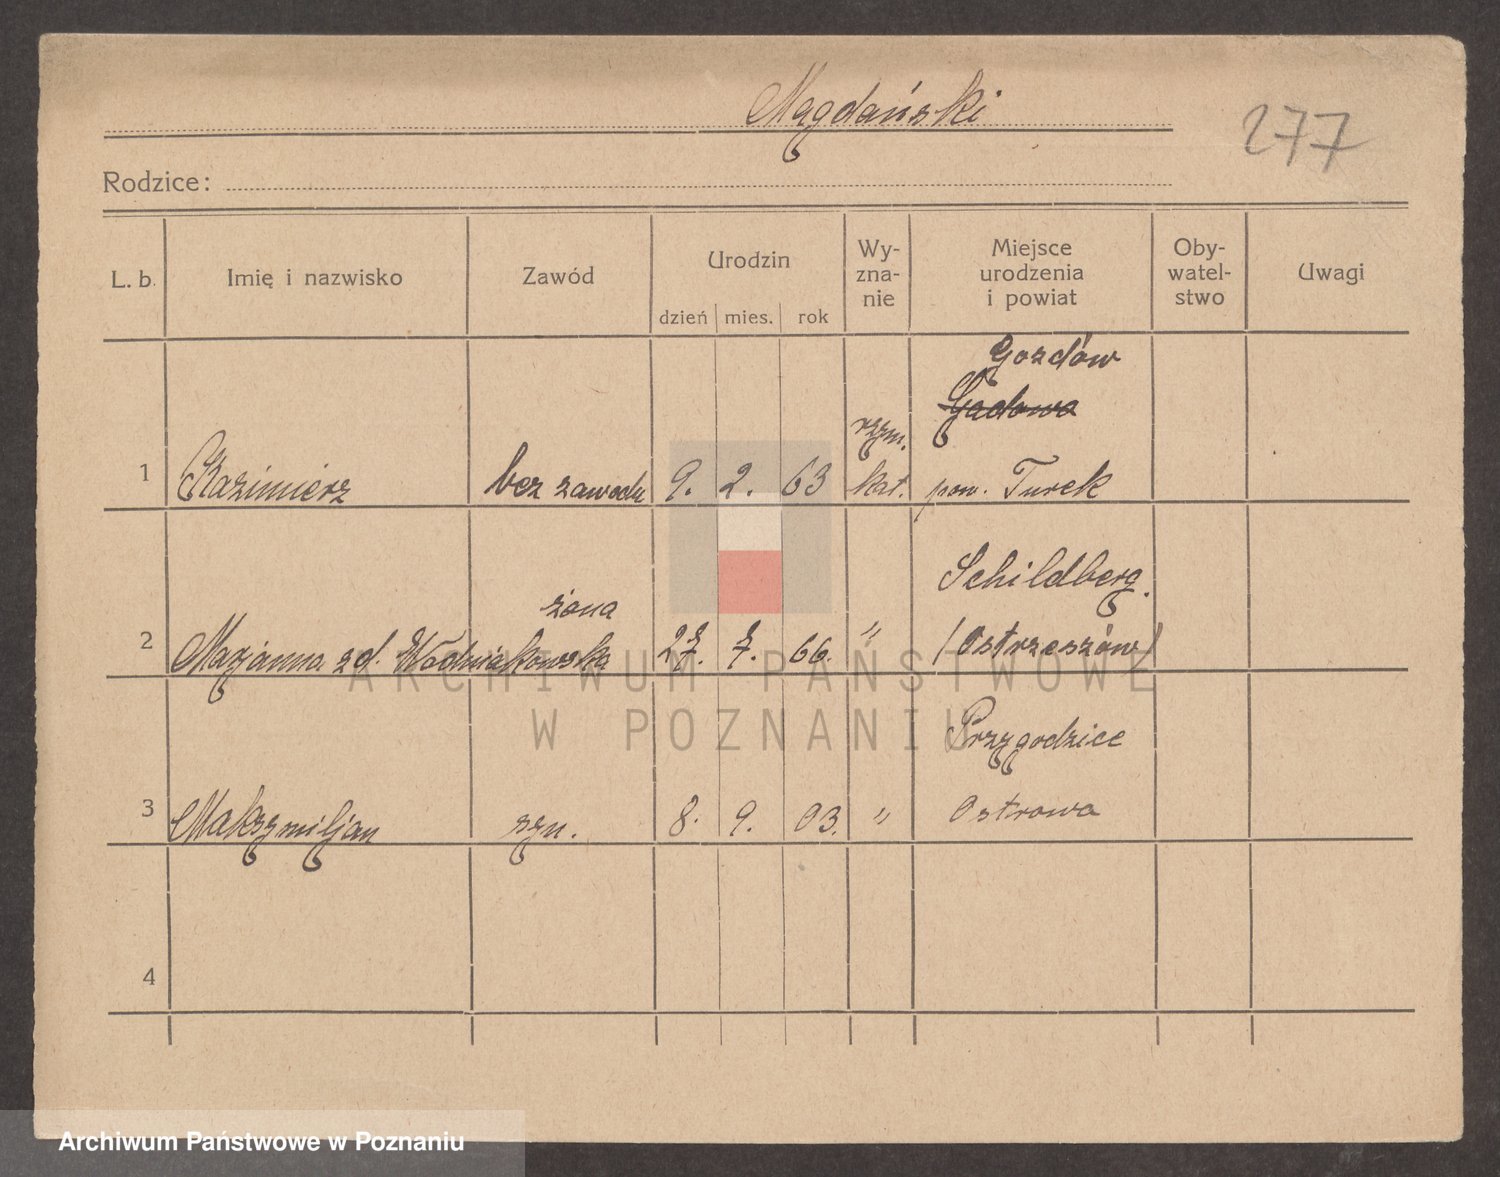 Magdański
277
Rodzice:
L. b. Imię i nazwisko Zawód Urodzin Wy-zna-nie Miejsce urodzenia i powiat Oby-watel-stwo Uwagi
dzień mies. rok
Gozdów
Gadowa
1 Kazimierz bez zawodu 9. 2. 63 rzym. kat. pow. Turek
Schildberg.
żona
2 Marjanna zd. Wodniakowska 27. 7. 66. " (Ostrzeszów)
Przygodzice
3 Maksymiljan syn. 8. 9. 03. " Ostrowa
4
ARCHIWUM PAŃSTWOWE
W POZNANIU
Archiwum Państwowe w Poznaniu